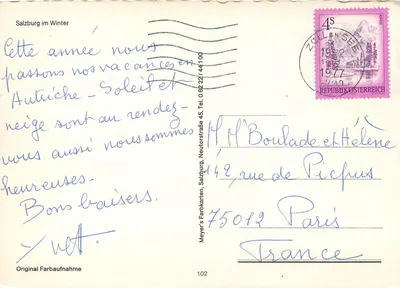 Salzburg im Winter
Cette année nous
passons nos vacances en
Autriche - Soleil et
neige sont au rendez-
vous aussi nous sommes
heureuses.
Bons baisers.
Yvett.
Original Farbaufnahme
Meyer's Farbkarten, Salzburg, Neutorstraße 45, Tel. 0 62 22 / 44 1 00
102
4S
REPUBLIK ÖSTERREICH
ZELL AM SEE
1977
M, Mme Boulade et Hélène
142, rue de Picpus
75012 Paris
France